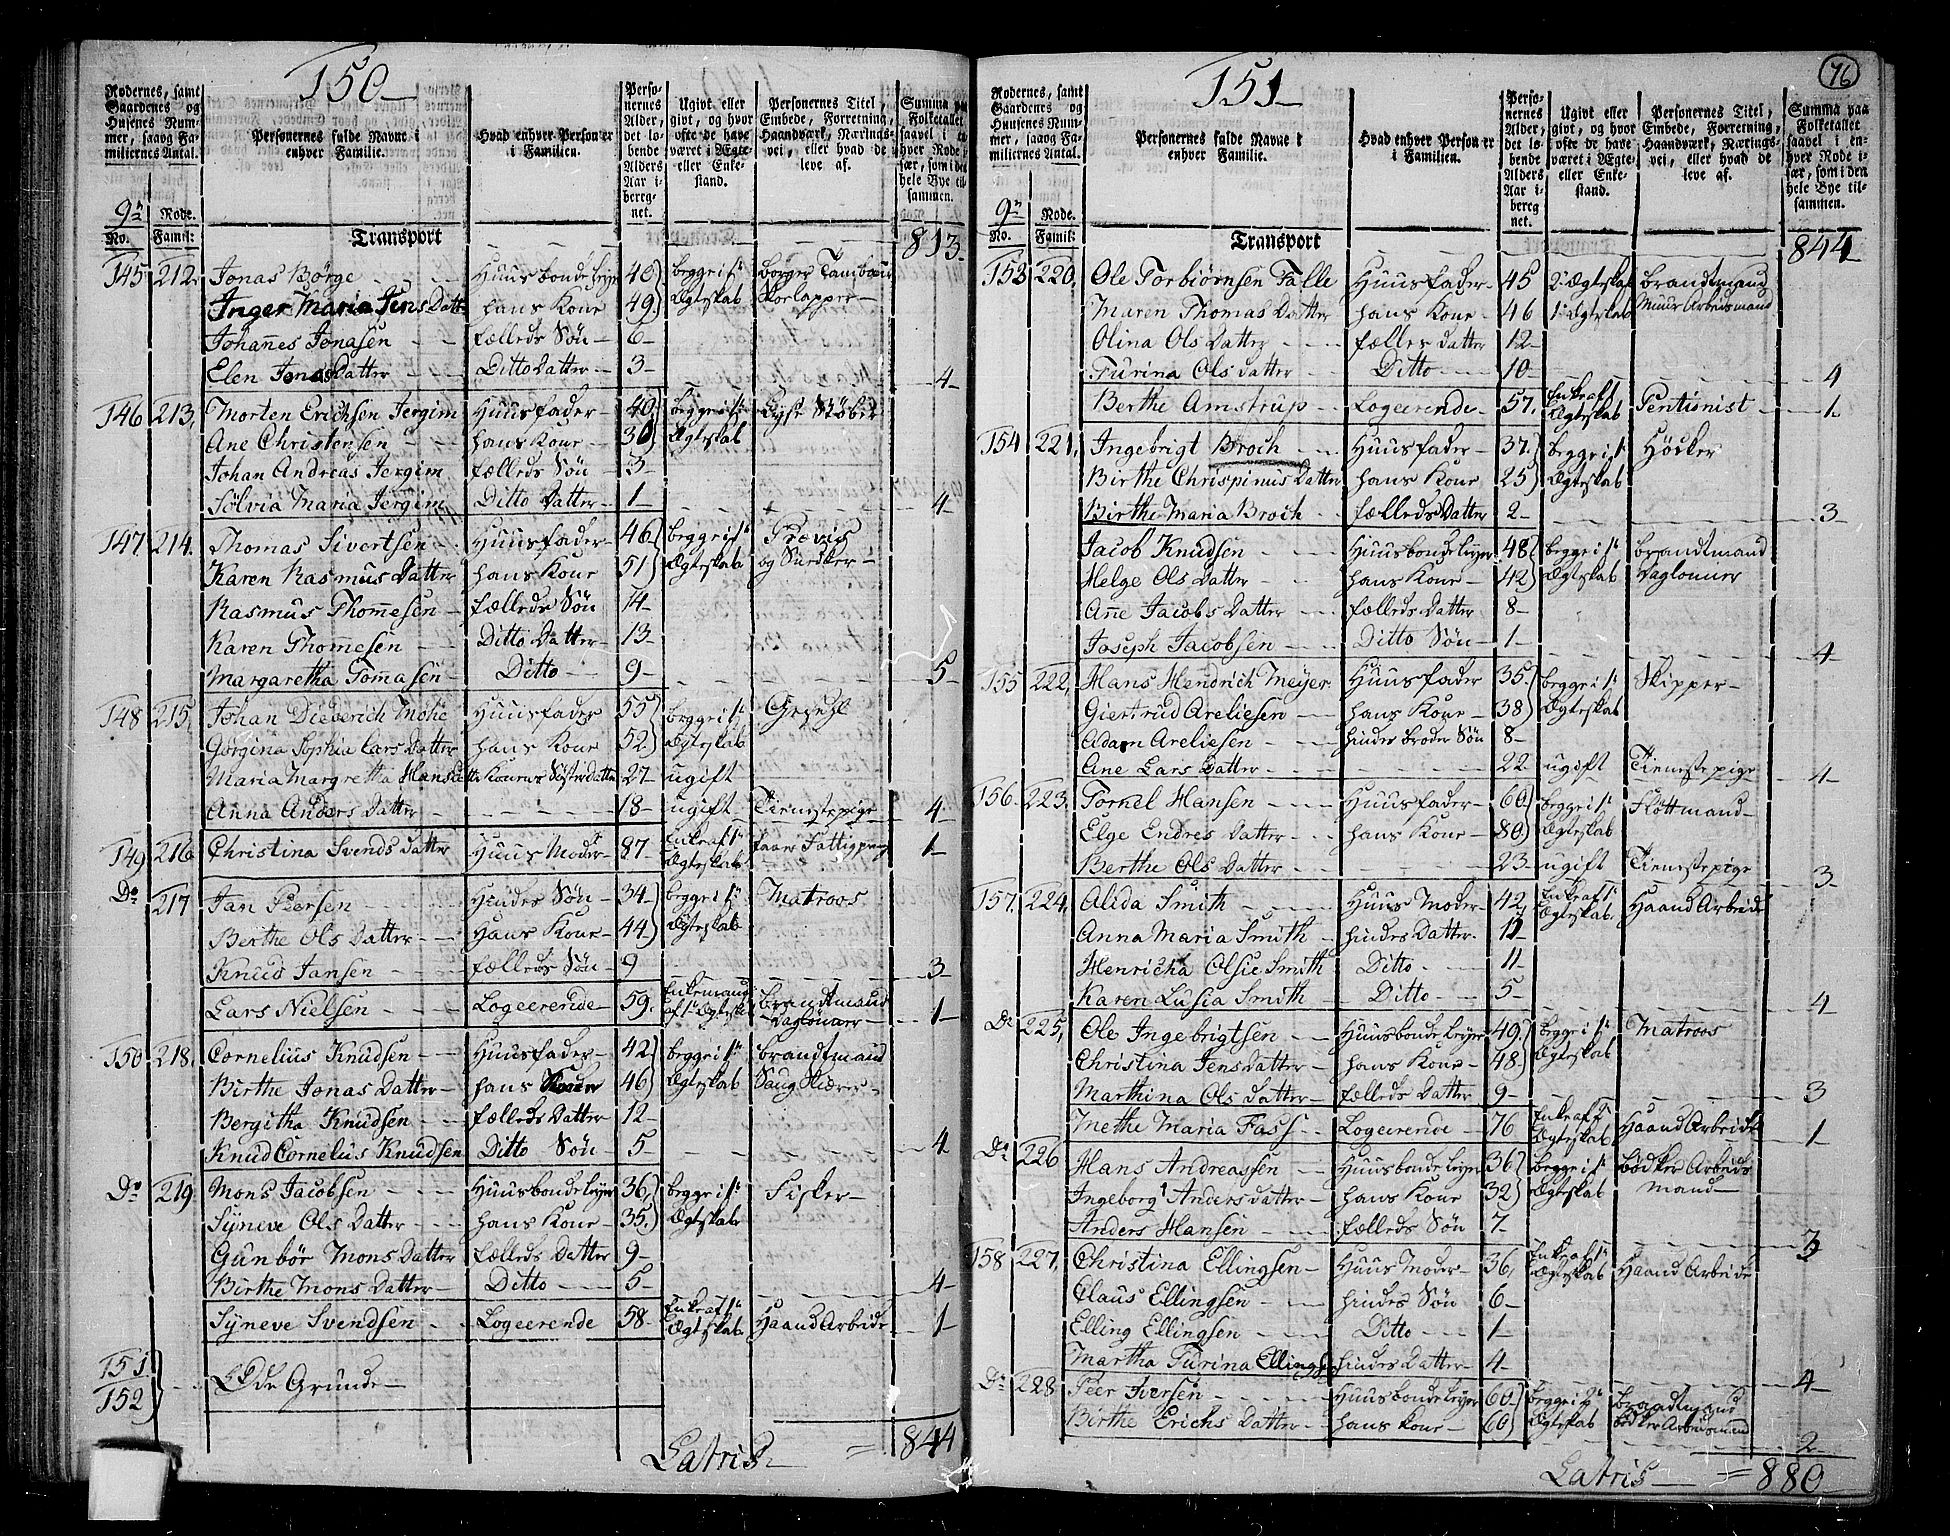 150
Rodernes, samt Gaardenes og Husenes Nummer, saavog Familiernes Antal.
Personernes fulde Navne i enhver Familie.
Hvad enhver Person er i Familien.
Personernes Alder, det lobende Alders Aar iberegnet.
Ugivt eller givt, og hvor ofte de have været i Ægte- eller Enkestand.
Personernes Titel, Embede, Forretning, Haandværk, Nærings- vei, eller hvad de leve af.
Summa paa Folketallet saavel i enhver Rode især, som i den hele Bye tilsammen.
9n Rode.
No. Famil:
Transport 813
145 212. Jonas Børge Huusbonde Leyer 40 begge i 1te Borger Tambour
Inger Maria Jens Datter hans Kone 49 Ægteskab Skoelapper
Johannes Jonasen fælleds Søn 6
Elen Jonas Datter Ditto Datter 3 4
146 213. Morten Erichsen Jergim Huusfader 40 begge i 1te
Ane Christensen hans Kone 30 Ægteskab
Johan Andreas Jergim fælleds Søn 3
Sølvia Maria Jergim Ditto Datter 1 4
147 214. Thomas Sivertsen Huusfader 46 begge i 1te
Karen Rasmus Datter hans Kone 51 Ægteskab og Snedker
Rasmus Thommesen fælleds Søn 14
Karen Thommesen Ditto Datter 13
Margaretha Tommasen Ditto 9 5
148 215. Johan Diederich Mohe Huusfader 55 begge i 1te
Gørgina Sophia Lars Datter hans Kone 52 Ægteskab
Maria Margretha Hansdatter Konens Søster Datter 27 ugift
Anna Anders Datter 18 ugift Tienestepige 4
149 216 Christina Svends Datter Huus Moder 87 Enke af 1te Ægteskab faaer Fattigpenge 1
Do 217 Jan Peersen Hindes Søn 34 begge i 1te Matroos
Berthe Ols Datter Hans Kone 44 Ægteskab
Knud Jansen fælleds Søn 9 3
Lars Nielsen Logeerende 59 Enkemand af 1te Ægteskab brandtmand Daglønner 1
150 218. Cornelius Knudsen Huusfader 42 begge i 1te brandtmand
Birthe Jonas Datter hans Kone 46 Ægteskab Saug Skærer
Bergitha Knudsen fælleds Datter 12
Knud Cornelius Knudsen Ditto Søn 5 4
Do 219 Mons Jacobsen Huusbonde Leyer 36 begge i 1te Fisker
Syneve Ols Datter hans Kone 35 Ægteskab
Gunbør Mons Datter fælleds Datter 9
Birthe Mons Datter Ditto 5 4
Syneve Svendsen Logeerende 58 Enke af 1te Ægteskab Haand Arbeide 1
151
152 Øde Grunde
Latris = 844
76
151
Rodernes, samt Gaardenes og Huusenes Nummer, saavog Familiernes Antal.
Personernes fulde Navne i enhver Familie.
Hvad enhver Person er i Familien.
Personernes Alder, det lobende Alders Aar iberegnet.
Ugivt eller givt, og hvor ofte de have været i Ægte- eller Enkestand.
Personernes Titel, Embede, Forretning, Haandværk, Næringsvei, eller hvad de leve af.
Summa paa Folketallet saavel i enhver Rode især, som i den hele Bye tilsammen.
9n Rode.
No. Famil:
Transport 844
153 220. Ole Torbiørnsen Falle Huusfader 45 2 Ægteskab brandtmand
Maren Thomas Datter hans Kone 46 1 Ægteskab Muur Arbeidsmand
Olina Ols Datter fælles datter 12
Turina Ols datter Ditto 10 4
Berthe Amstrup Logeerende 57 Enke af 1te Ægteskab Pentionist 1
154 221. Ingebrigt Broch Huusfader 37 begge i 1te Höcker
Birthe Chrispinus Datter hans Kone 25 Ægteskab
Birthe Maria Broch fælleds Datter 2 3
Jacob Knudsen Huusbonde Leyer 48 begge i 1te brandtmand
Helge Ols Datter hans Kone 42 Ægteskab Daglonner
Anne Jacobs Datter fælleds Datter 8
Joseph Jacobsen Ditto Søn 1 4
155 222. Hans Hendrich Meyer Huusfader 35 begge i 1te Skipper
Giertrud Areliesen hans Kone 38 Ægteskab
Adam Areliesen hindes broder Søn 8
Ane Lars Datter 22 ugift Tienestepige 4
156 223. Tornel Hansen Huusfader 60 begge i 1te Flottmand
Elge Endres Datter hans Kone 80 Ægteskab
Berthe Ols Datter 23 ugift Tienestepige 3
157. 224. Alida Smith Huus Moder 42 Enke af 1te Ægteskab Haand Arbeide
Anna Maria Smith hindes Datter 17
Henricha Olsie Smith Ditto 11
Karen Lusia Smith Ditto 5 4
Do 225. Ole Ingebrigtsen Huusbonde Leyer 49 begge i 1te Matroos
Christina Jens Datter hans Kone 48 Ægteskab
Marthina Ols Datter fælleds Datter 9 3
Methe Maria Fass Logeerende 76 Enke af 2 Ægteskab Haand Arbeide 1
Do 226 Hans Andreassen Huusbonde Leyer 36 begge i 1te bødker Arbeids
Ingeborg Anders datter hans Kone 32 Ægteskab mand
Anders Hansen fælleds Søn 7 3
158 227. Christina Ellingsen Huus Moder 36 Enke af 1te Ægteskab Haand Arbeide
Claus Ellingsen hindes Søn 6
Elling Ellingsen Ditto 1
Martha Turina Ellings hindes Datter 4 4
Do 228 Peer Iversen Huusbonde Leyer 60 begge i 2 brandtmand
Birthe Erichs Datter hans kone 60 Ægteskab bødker Arbeidsmand 2
Latris = 880